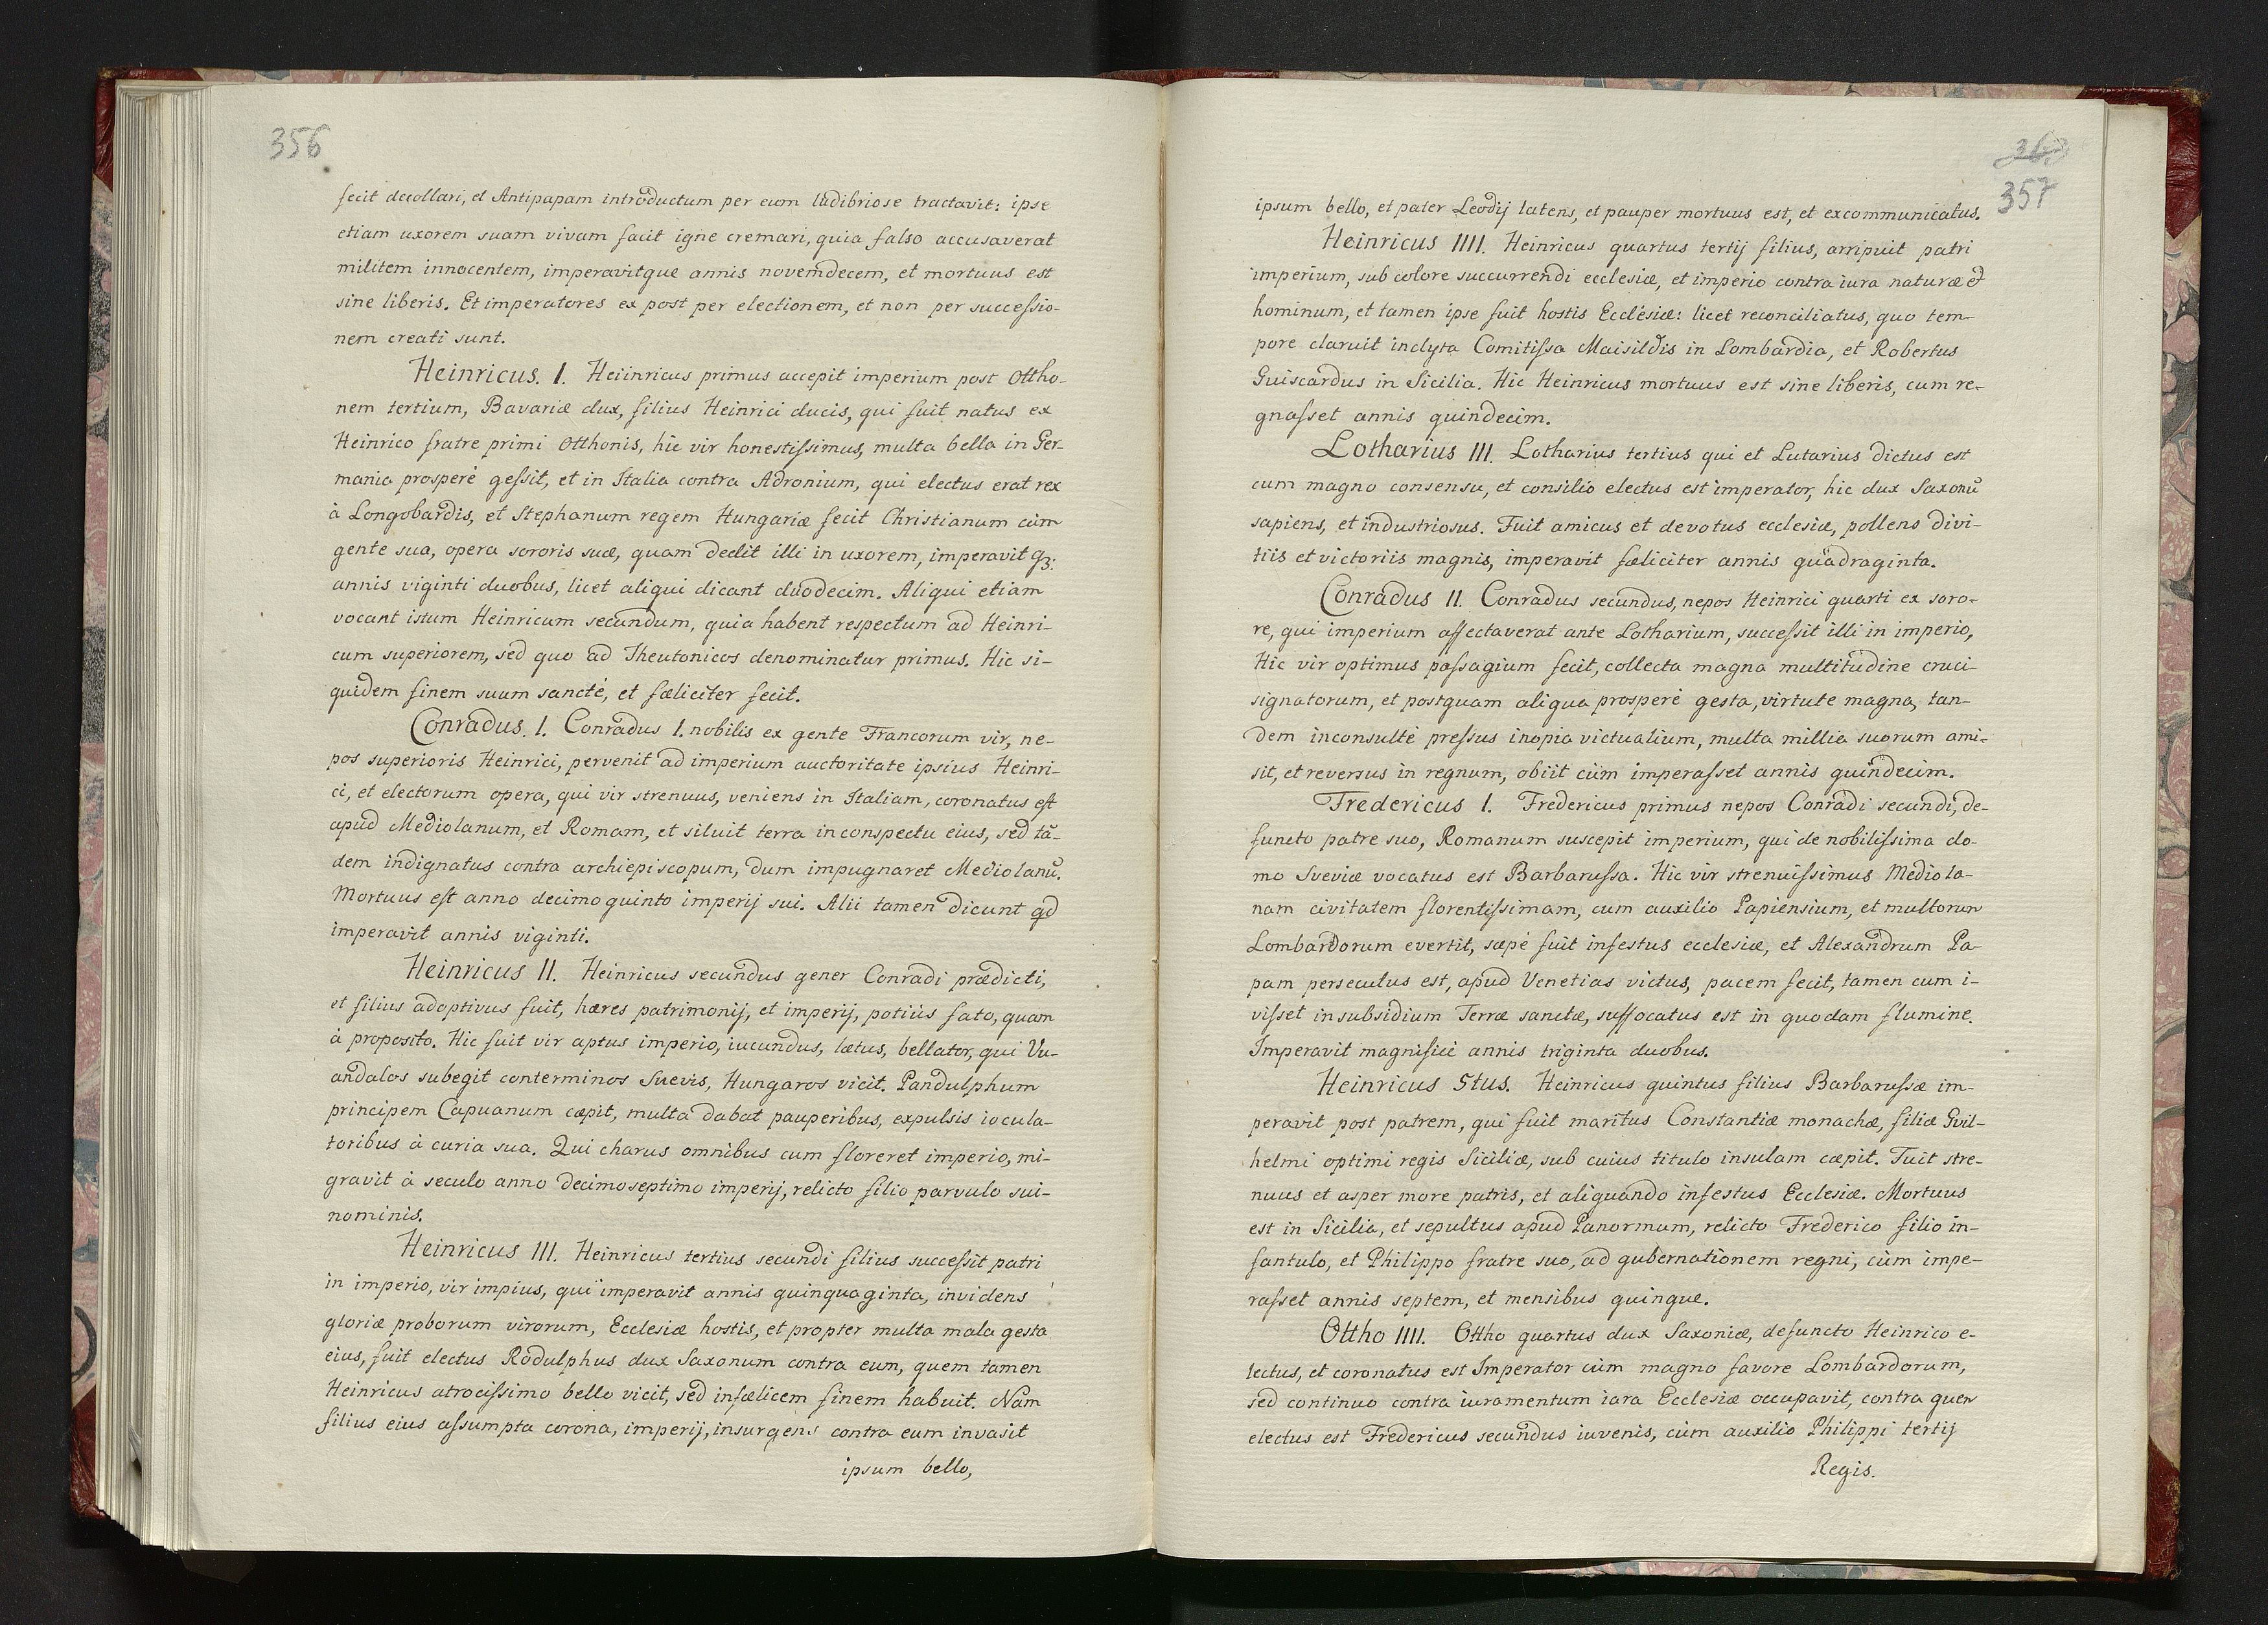 356
fecit decollari, et Antipapam introductum per eum ludibriose tractavit: ipse
etiam uxorem suam vivam facit igne cremari, quia falso accusaverat
militem innocentem, imperavitque annis novemdecem, et mortuus est
sine liberis. Et imperatores ex post per electionem, et non per successio-
nem creati sunt.
Heinricus. I. Heiinricus primus accepit imperium post Ottho-
nem tertium, Bavariæ dux, filius Heinrici ducis, qui fuit natus ex
Heinrico fratre primi Otthonis, hic vir honestissimus, multa bella in Ger-
mania prosperè gessit, et in Italia contra Adronium, qui electus erat rex
à Longobardis, et Stephanum regem Hungariæ fecit Christianum cùm
gente sua, opera sororis suæ, quam dedit illi in uxorem, imperavit q3.
annis viginti duobus, licet aliqui dicant duodecim. Aliqui etiam
vocant istum Heinricum secundum, quia habent respectum ad Heinri-
cum superiorem, sed quo ad Theutonicos denominatur primus. Hic si-
quidem finem suum sanctè, et fæliciter fecit.
Conradus. I. Conradus I. nobilis ex gente Francorum vir, ne-
pos superioris Heinrici, pervenit ad imperium auctoritate ipsius Heinri-
ci, et electorum opera, qui vir strenuus, veniens in Italiam, coronatus est
apud Mediolanum, et Romam, et siluit terra in conspectu eius, sed tā-
dem indignatus contra archiepiscopum, dum impugnaret Mediolanū.
Mortuus est anno decimo quinto imperij sui. Alii tamen dicunt qd
imperavit annis viginti.
Heinricus II. Heinricus secundus gener Conradi prædicti,
et filius adoptivus fuit, hæres patrimonij, et imperij, potiùs fato, quam
à proposito. Hic fuit vir aptus imperio, iucundus, lætus, bellator, qui Vu-
andalos subegit conterminos Suevis, Hungaros vicit. Pandulphum
principem Capuanum cæpit, multa dabat pauperibus, expulsis iocula-
toribus à curia sua. Qui charus omnibus cum floreret imperio, mi-
gravit à seculo anno decimoseptimo imperij, relicto filio parvulo sui-
nominis.
Heinricus III. Heinricus tertius secundi filius successit patri
in imperio, vir impius, qui imperavit annis quinquaginta, invidens
gloriæ proborum virorum, Ecclesiæ hostis, et propter multa mala gesta
eius, fuit electus Rodulphus dux Saxonum contra eum, quem tamen
Heinricus atrocissimo bello vicit, sed infælicem finem habuit. Nam
filius eius assumpta corona, imperij, insurgens contra eum invasit
ipsum bello,
363
357
ipsum bello, et pater Leodij latens, et pauper mortuus est, et excommunicatus.
Heinricus IIII. Heinricus quartus tertij filius, arripuit patri
imperium, sub colore succurrendi ecclesiæ, et imperio contra iura naturæ et
hominum, et tamen ipse fuit hostis Ecclesiæ: licet reconciliatus, quo tem-
pore claruit inclyta Comitissa Maisildis in Lombardia, et Robertus
Guiscardus in Sicilia. Hic Heinricus mortuus est sine liberis, cum re-
gnasset annis quindecim.
Lotharius III. Lotharius tertius qui et Lutarius dictus est
cum magno consensu, et consilio electus est imperator, hic dux Saxonū
sapiens, et industriosus. Fuit amicus et devotus ecclesiæ, pollens divi-
tiis et victoriis magnis, imperavit fæliciter annis quadraginta.
Conradus II. Conradus secundus, nepos Heinrici quarti ex soro-
re, qui imperium affectaverat ante Lotharium, successit illi in imperio,
Hic vir optimus passagium fecit, collecta magna multitudine cruci-
signatorum, et postquam aliqua prosperè gesta, virtute magna, tan-
dem inconsultè pressus inopia victualium, multa millia suorum ami-
sit, et reversus in regnum, obiit cùm imperasset annis quindecim.
Fredericus I. Fredericus primus nepos Conradi secundi, de-
functo patre suo, Romanum suscepit imperium, qui de nobilissima do-
mo Sveviæ vocatus est Barbarussa. Hic vir strenuissimus Mediola-
nam civitatem florentissimam, cum auxilio Papiensium, et multorum
Lombardorum evertit, sæpè fuit infestus ecclesiæ, et Alexandrum Pa-
pam persecutus est, apud Venetias victus, pacem fecit, tamen cum i-
visset in subsidium Terræ sanctæ, suffocatus est in quodam flumine.
Imperavit magnificè annis triginta duobus.
Heinricus 5tus. Heinricus quintus filius Barbarussæ im-
peravit post patrem, qui fuit maritus Constantiæ monachæ, filiæ Gvil-
helmi optimi regis Siciliæ, sub cuius titulo insulam cæpit. Fuit stre-
nuus et asper more patris, et aliquando infestus Ecclesiæ. Mortuus
est in Sicilia, et sepultus apud Panormum, relicto Frederico filio in-
fantulo, et Philippo fratre suo, ad gubernationem regni, cùm impe-
rasset annis septem, et mensibus quinque.
Ottho IIII. Ottho quartus dux Saxoniæ, defuncto Heinrico e-
lectus, et coronatus est Imperator cùm magno favore Lombardorum,
sed continuo contra iuramentum iara Ecclesiæ occupavit, contra quem
electus est Fredericus secundus iuvenis, cùm auxilio Philippi tertij
Regis.